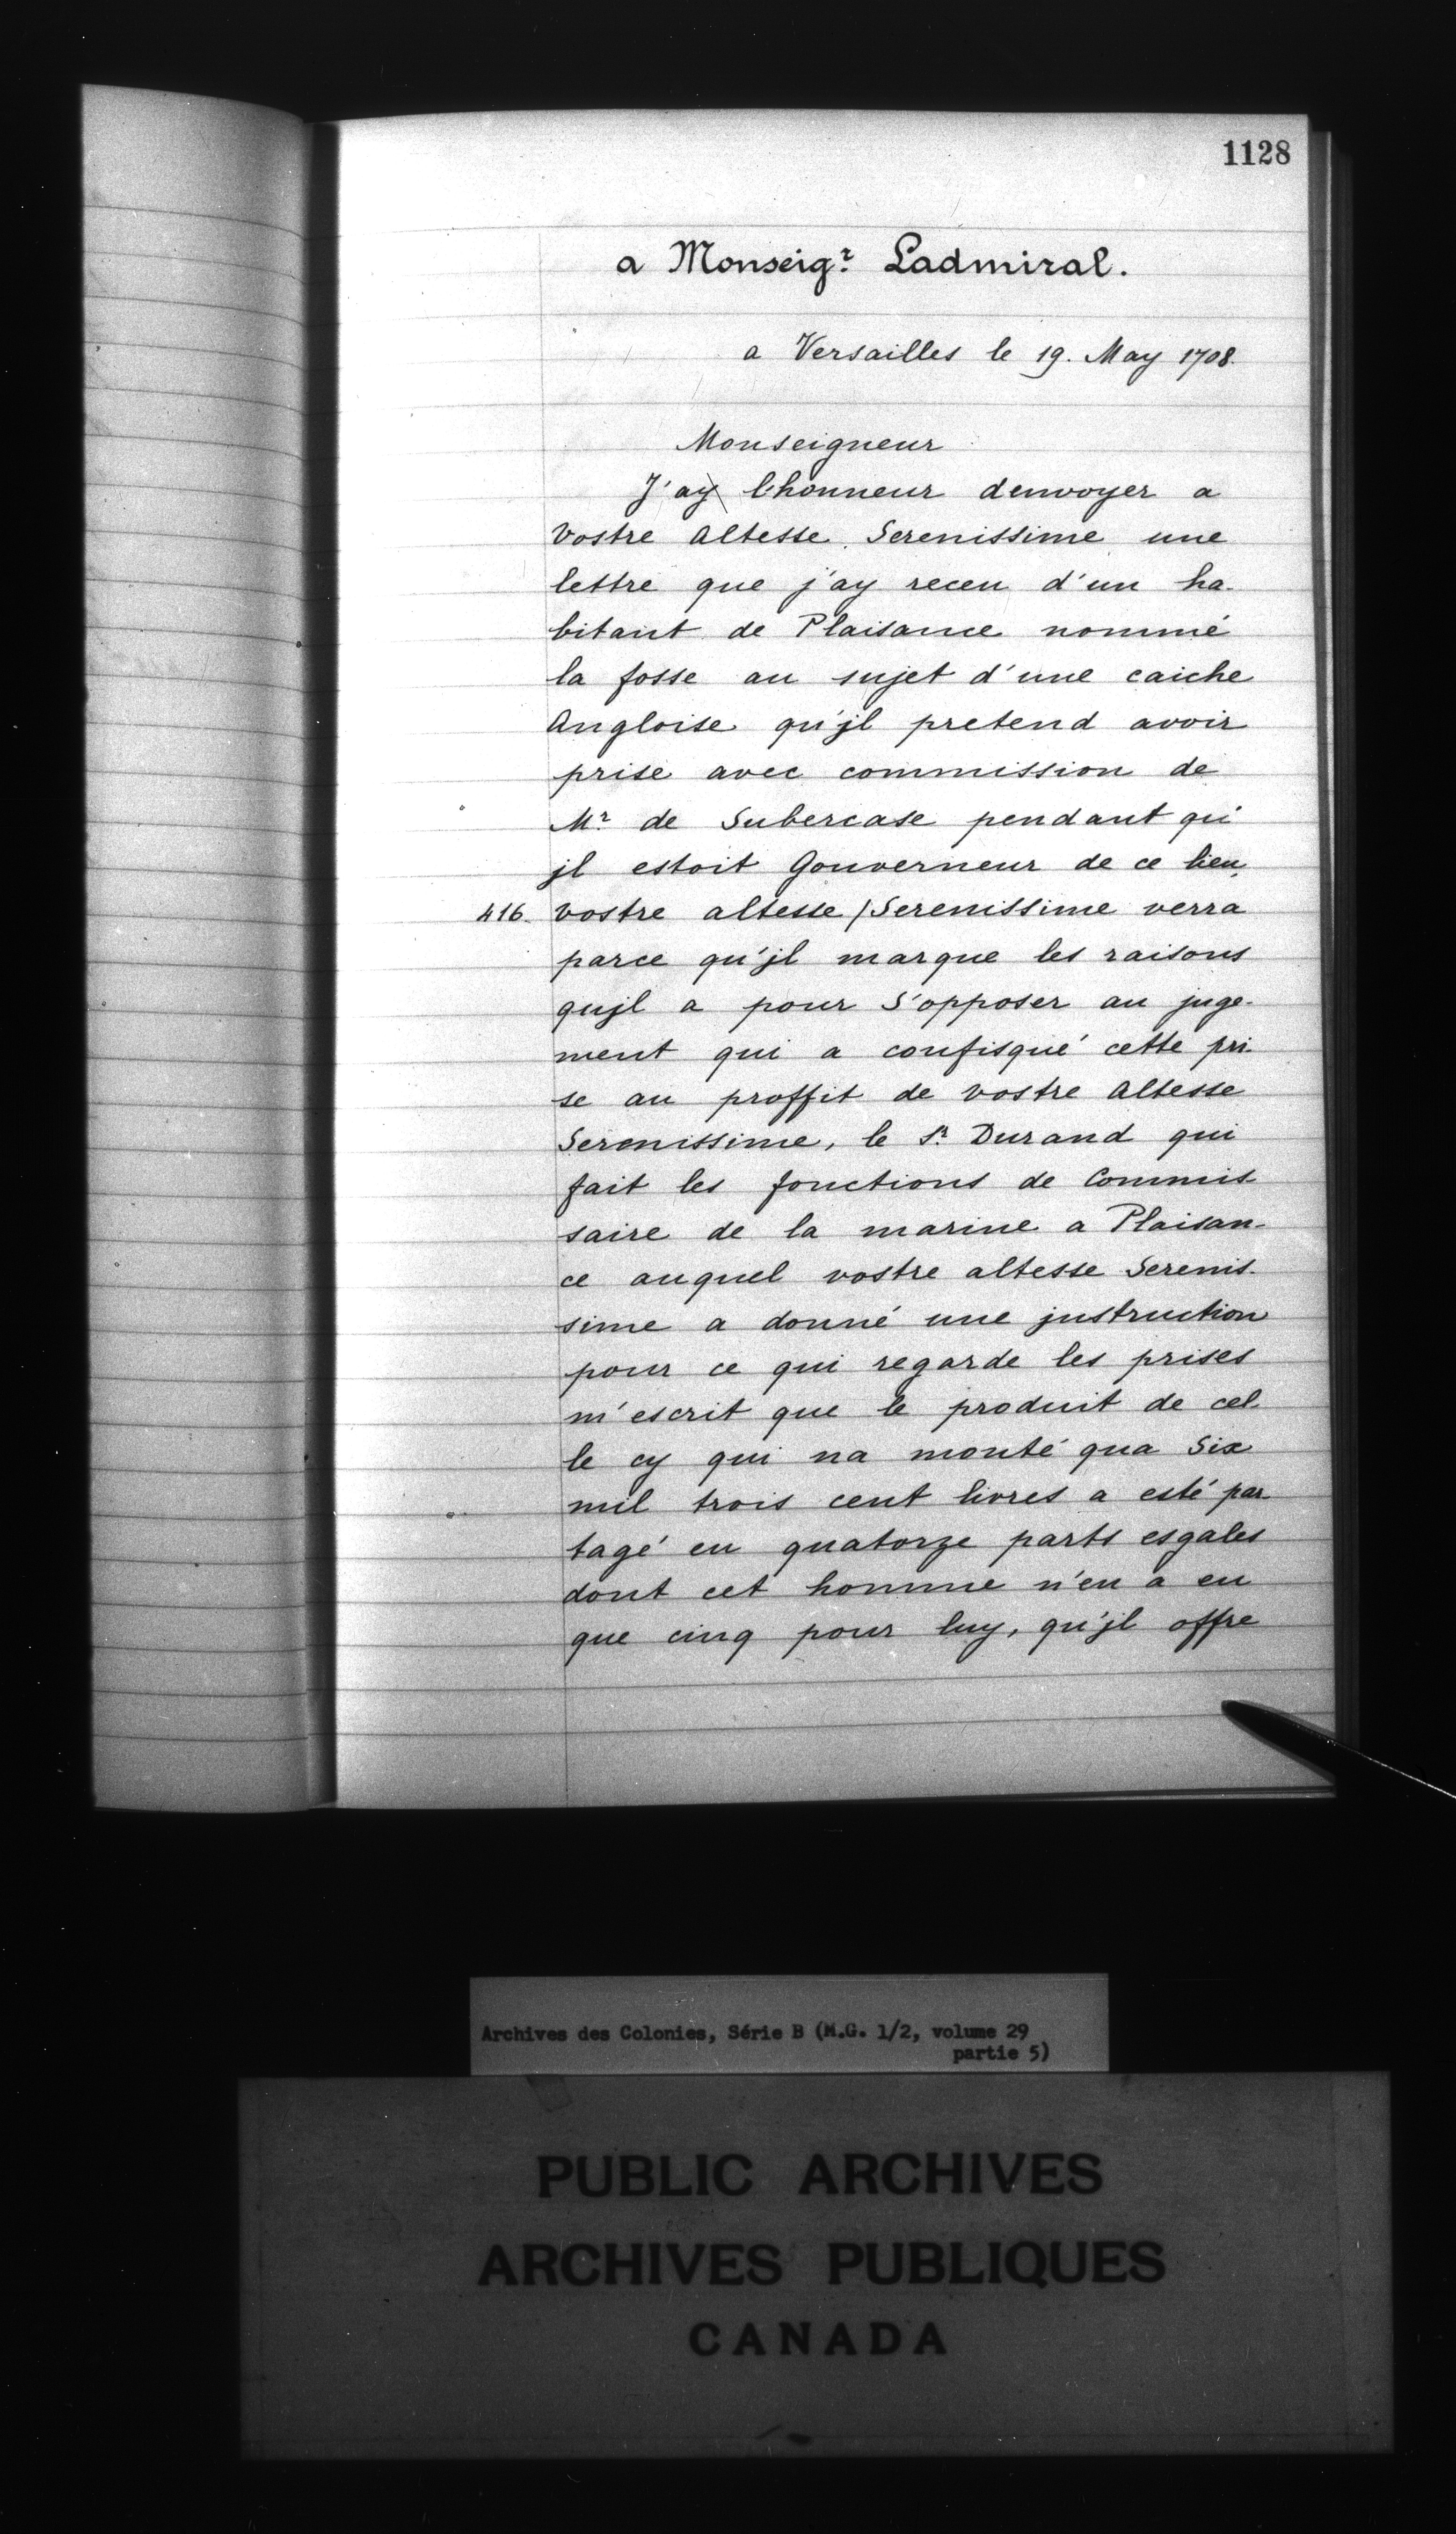 1128
a Monseigr. Ladmiral.
a Versailles le 19. May 1708.
Monseigneur
J'ay l'honneur denvoyer a
vostre altesse Serenissime une
lettre que j'ay receu d'un ha-
bitant de Plaisance nommé
la fosse au sujet d'une caiche
Angloise qu'jl pretend avoir
prise avec commission de
Mr. de Subercase pendant qu'
jl estoit Gouverneur de ce lieu,
416. vostre altesse / Serenissime verra
parce qu'jl marque les raisons
qujl a pour s'opposer au juge-
ment qui a confisqué cette pri-
se au proffit de vostre altesse
Serenissime, le Sr. Durand qui
fait les fonctions de Commis-
saire de la marine a Plaisan-
ce auquel vostre altesse Serenis-
sime a donné une jnstruction
pour ce qui regarde les prises
m'escrit que le produit de cel-
le cy qui na monté qua six
mil trois cent livres a esté par-
tagé en quatorze parts esgales
dont cet homme n'en a eu
que cinq pour luy, qu'jl offre
Archives des Colonies, Série B (M.G. 1/2, volume 29
partie 5)
PUBLIC ARCHIVES
ARCHIVES PUBLIQUES
CANADA